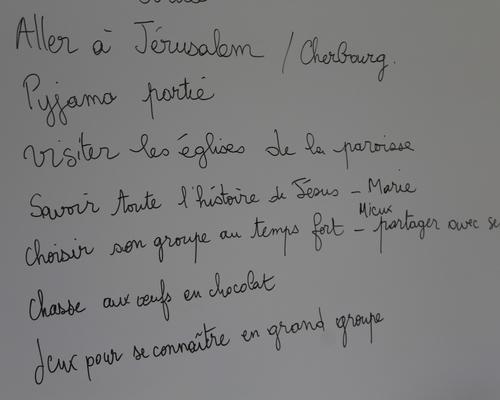 Aller à Jérusalem / Cherbourg.
Pyjama portié
Visiter les églises de la paroisse
Savoir toute l'histoire de Jésus - Marie
Choisir son groupe au temps fort - Mieux partager avec se
Chasse aux œufs en chocolat
Jeux pour se connaître en grand groupe